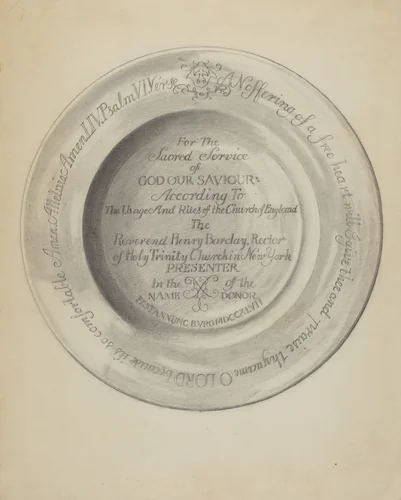 AN offering of a free heart will I give thee and praise thy name O LORD because it is so comfortable Amen Alleluia Amen LIV. Psalm VI Verse
For The
Sacred Service
of
GOD OUR SAVIOUR:
According To
The Usage And Rites of the Church of England
The
Reverend Henry Barclay, Rector
of Holy Trinity Church in New York
PRESENTER
In the of the
NAME DONOR